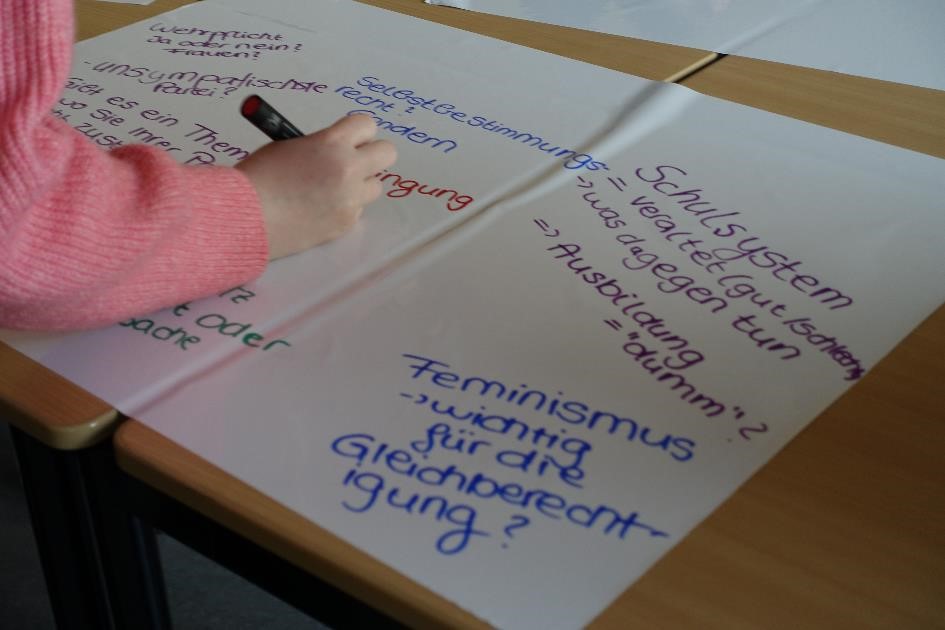 Wehrpflicht
Ja oder nein?
Frauen?
- unsympatischste
Partei?
Gibt es ein Them
wo sie Ihrer
Selbstbestimmungs-
recht?
Gendern
ingung
t oder
sache
Schulsystem
= veraltet (gut/schlecht)
-> was dagegen tun
=> Ausbildung
= "dumm"?
Feminismus
-> wichtig
für die
Gleichberecht-
igung?